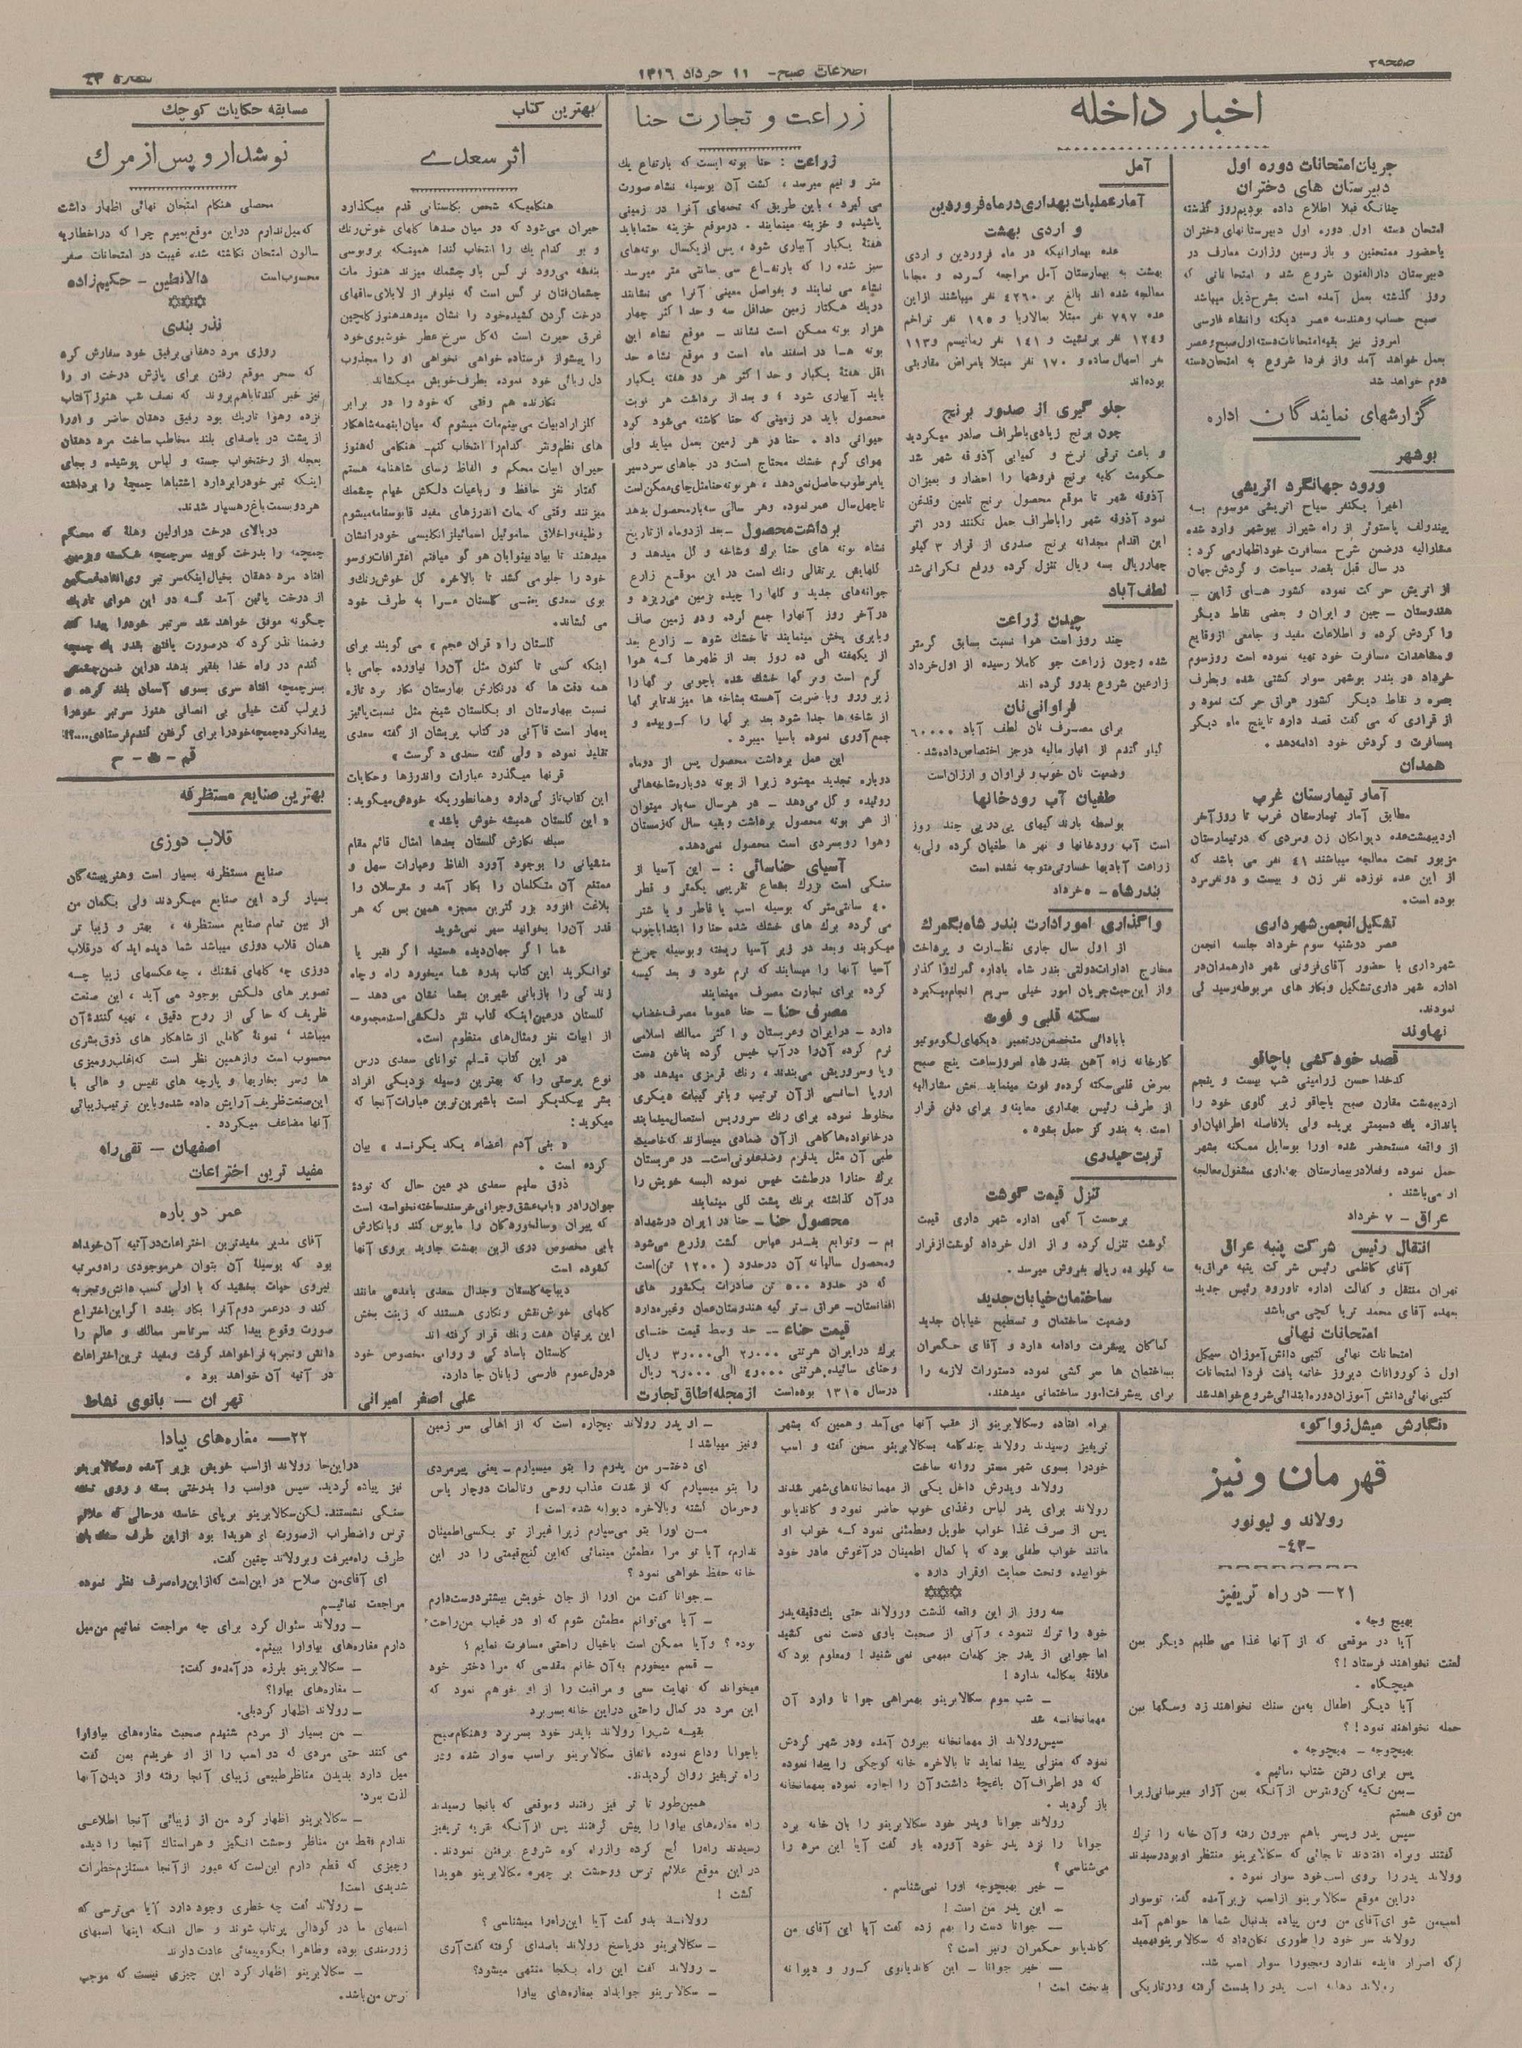 صفحه ۲
اطلاعات صبح - ۱۱ خرداد ۱۳۱۶
شماره ۴۳
اخبار داخله
جریان امتحانات دوره اول
دبیرستان های دختران
چنانکه قبلا اطلاع داده بودیم روز گذشته
امتحان دسته اول دوره اول دبیرستانهای دختران
باحضور ممتحنین و بازرسین وزارت معارف در
دبیرستان دارالفنون شروع شد و امتحاناتی که
روز گذشته بعمل آمده است بشرح ذیل میباشد
صبح حساب وهندسه عصر دیکته وانشاء فارسی
امروز نیز بقیه امتحانات دسته اول صبح وعصر
بعمل خواهد آمد واز فردا شروع به امتحان دسته
دوم خواهد شد
گزارشهای نمایندگان اداره
بوشهر
ورود جهانگرد اتریشی
اخیرا یکنفر سیاح اتریشی موسوم به
از راه شیراز ببوشهر وارد شده
مشارالیه درضمن شرح مسافرت خود اظهار می کرد :
در سال قبل بقصد سیاحت و گردش جهان
از اتریش حرکت نموده کشور های ژاپن -
هندوستان - چین و ایران و بعضی نقاط دیگر
را گردش کرده و اطلاعات مفید و جامعی از وقایع
و مشاهدات مسافرت خود تهیه نموده است روز سوم
خرداد در بندر بوشهر سوار کشتی شده وبطرف
بصره و نقاط دیگر کشور عراق حرکت نمود و
از قراری که می گفت قصد دارد تا پنج ماه دیگر
بمسافرت و گردش خود ادامه دهد .
همدان
آمار تیمارستان غرب
مطابق آمار تیمارستان غرب تا روز آخر
اردیبهشت عده دیوانگان زن ومردی که در تیمارستان
مزبور تحت معالجه میباشند ۴۱ نفر می باشد که
از این عده نوزده نفر زن و بیست و دونفر مرد
بوده است .
تشکیل انجمن شهرداری
عصر دوشنبه سوم خرداد جلسه انجمن
شهرداری با حضور آقای فزونی شهر دار همدان در
اداره شهر داری تشکیل وبکار های مربوطه رسیدگی
نمودند .
نهاوند
قصد خودکشی باچاقو
کدخدا حسن زرامینی شب بیست و پنجم
اردیبهشت مقارن صبح باچاقو زیر گلوی خود را
باندازه یک دسیمتر بریده ولی بلافاصله اطرافیان او
از واقعه مستحضر شده اورا بوسایل ممکنه بشهر
حمل نموده وفعلا در بیمارستان بهداری مشغول معالجه
او می باشند .
عراق - ۷ خرداد
انتقال رئیس شرکت پنبه عراق
آقای کاظمی رئیس شرکت پنبه عراق به
تهران منتقل و کفالت اداره تاورود رئیس جدید
بعهده آقای محمد ثریا کچی می باشد
امتحانات نهائی
امتحانات نهائی کتبی دانش آموزان سیکل
اول ذکور و اناث دیروز خاتمه یافت فردا امتحانات
کتبی نهائی دانش آموزان دوره ابتدائی شروع خواهد شد
آمل
آمار عملیات بهداری در ماه فروردین
و اردی بهشت
عده بیمارانیکه در ماه فروردین و اردی
بهشت به بیمارستان آمل مراجعه کرده و مجانا
معالجه شده اند بالغ بر ۴۲۶۰ نفر میباشند از این
عده ۷۹۷ نفر مبتلا بمالاریا و ۱۹۵ نفر تراخم
و ۱۲۴ نفر برنشیت و ۱۴۱ نفر رماتیسم و ۱۱۳
نفر اسهال ساده و ۱۷۰ نفر مبتلا بامراض مقاربتی
بوده اند
جلو گیری از صدور برنج
چون برنج زیادی باطراف صادر میگردید
و باعث ترقی نرخ و کمیابی آذوقه شهر شد
حکومت کلیه برنج فروشها را احضار و بمیزان
آذوقه شهر تا موقع محصول برنج تامین وقدغن
نمود آذوقه شهر را باطراف حمل نکنند ودر اثر
این اقدام مجدانه برنج صدری از قرار ۳ کیلو
چهار ریال بسه ریال تنزل کرده ورفع نگرانی شد
لطف آباد
چیدن زراعت
چند روز است هوا نسبت بسابق گرمتر
شده وچون زراعت جو کاملا رسیده از اول خرداد
زارعین شروع بدرو کرده اند
فراوانی نان
برای مصرف نان لطف آباد ۶۰۰۰۰
کیلو گندم از انبار مالیه درجز اختصاص داده شد .
وضعیت نان خوب و فراوان و ارزان است
طغیان آب رودخانها
بواسطه بارندگیهای پی در پی چند روز
است آب رودخانها و نهر ها طغیان کرده ولی به
زراعت آبادیها خسارتی متوجه نشده است
بندرشاه - ۵ خرداد
واگذاری امور ادارت بندر شاه بگمرک
از اول سال جاری نظارت و پرداخت
مخارج ادارات دولتی بندر شاه باداره گمرک واگذار
و از این حیث جریان امور خیلی سریع انجام میگیرد
سکته قلبی و فوت
بابادائی متخصص در تعمیر دیگهای لکوموتیو
کارخانه راه آهن بندر شاه امروز ساعت پنج صبح
بمرض قلبی سکته کرده و فوت مینماید نعش مشارالیه
از طرف رئیس بهداری معاینه و برای دفن قرار
است به بندر گز حمل بشود .
تربت حیدری
تنزل قیمت گوشت
برحسب آگهی اداره شهر داری قیمت
گوشت تنزل کرده و از اول خرداد گوشت از قرار
سه کیلو ده ریال بفروش میرسد .
ساختمان خیابان جدید
وضعیت ساختمان و تسطیح خیابان جدید
کماکان پیشرفت وادامه دارد و آقای حکمران
بساختمان ها سرکشی نموده دستورات لازمه را
برای پیشرفت امور ساختمانی میدهند .
زراعت و تجارت حنا
زراعت : حنا بوته ایست که بارتفاع یک
متر و نیم میرسد ، کشت آن بوسیله نشاء صورت
می گیرد ، باین طریق که تخمهای آنرا در زمینی
پاشیده و خزینه مینمایند . درموقع خزینه حتما باید
هفتهٔ یکبار آبیاری شود ، پس از یکسال بوته های
سبز شده را که بارتفاع سی سانتی متر میرسد
نشاء می نمایند و بفواصل معینی آنرا می نشانند
دریک هکتار زمین حداقل سه و حد اکثر چهار
هزار بوته ممکن است نشاند - موقع نشاء این
بوته ها در اسفند ماه است و موقع نشاء حد
اقل هفتهٔ یکبار و حد اکثر هر دو هفته یکبار
باید آبیاری شود و بعد از برداشت هر نوبت
محصول باید در زمینی که حنا کاشته می شود کود
حیوانی داد . حنا در هر زمین بعمل میاید ولی
بهوای گرم خشک محتاج است و در جاهای سردسیر
یا مرطوب حاصل نمی دهد ، هر بوته حنا مثل چای ممکن است
تا چهل سال عمر نموده وهر سالی سه بار محصول بدهد
برداشت محصول - بعد از دوماه از تاریخ
نشاء بوته های حنا برگ وشاخه و گل میدهد و
گلهایش پرتقالی رنگ است در این موقع زارع
جوانه های جدید و گلها را چیده بزمین می ریزد و
در آخر روز آنهارا جمع کرده و در زمین صاف
و بایری پخش مینمایند تا خشک شود - زارع بعد
از یکهفته الی ده روز بعد از ظهرها که هوا
گرم است و برگها خشک شده باچوبی برگها را
زیر ورو وبا ضربت آهسته بشاخه ها میزند تا برگها
از شاخه ها جدا شود بعد برگها را کوبیده و
جمع آوری نموده باسیا میبرد .
این عمل برداشت محصول پس از دوماه
دوباره تجدید میشود زیرا از بوته دوباره شاخه هائی
روئیده و گل می دهد - در هر سال سه بار میتوان
از هر بوته محصول برداشت و بقیه سال که زمستان
وهوا رو بسردی است محصول نمی دهد .
آسیای حناسائی : - این آسیا از
سنگی است بزرگ بشعاع تقریبی یکمتر و قطر
۴۰ سانتی متر که بوسیله اسب یا قاطر و یا شتر
می گردد برگ های خشک شده حنا را ابتدا باچوب
میکوبند وبعد در زیر آسیا ریخته وبوسیله چرخ
آسیا آنها را میسایند که نرم شود و بعد کیسه
کرده برای تجارت مصرف مینمایند
مصرف حنا - حنا عموما مصرف خضاب
دارد - در ایران وعربستان و اکثر ممالک اسلامی
نرم کرده آن را در آب خیس کرده بناخن دست
وپا وسر وریش می بندند ، رنگ قرمزی میدهد در
اروپا اسانسی از آن ترتیب و باترکیبات دیگری
مخلوط نموده برای رنگ سر وریش استعمال مینمایند
در خانواده ها گاهی از آن ضمادی میسازند که خاصیت
طبی آن مثل یدفرم وضدعفونی است - در عربستان
برگ حنارا در طشت خیس نموده البسه خویش را
در آن گذاشته برنگ پشت گلی مینمایند
محصول حنا - حنا در ایران در شهداد
بم - وتوابع بندر عباس کشت وزرع می شود
ومحصول سالیانه آن در حدود ( ۱۲۰۰ تن) است
که در حدود ۵۰۰ تن صادرات بکشور های
افغانستان - عراق - ترکیه هندوستان عمان وغیره دارد
قیمت حناء - حد وسط قیمت حنای
برگ در ایران هر تنی ۲،۰۰۰ الی ۳،۰۰۰ ریال
وحنای سائیده هر تنی ۴،۰۰۰ الی ۶،۰۰۰ ریال
در سال ۱۳۱۵ بوده است از مجله اطاق تجارت
بهترین کتاب
اثر سعدی
هنگامیکه شخص بگلستانی قدم میگذارد
حیران می شود که در میان صدها گلهای خوش رنگ
و بو کدام یک را انتخاب کند! همینکه بروبوسی
بنفشه می رود نرگس باو چشمک میزند هنوز مات
چشمان فتان نرگس است که نیلوفر از لابلای ساقهای
درخت گردن کشیده خود را نشان میدهد هنوز کاملا
غرق حیرت است که گل سرخ عطر خوشبوی خود
را پیشواز فرستاده خواهی نخواهی او را مجذوب
دل ربائی خود نموده بطرف خویش میکشاند .
نگارنده هم وقتی که خود را در برابر
گلزار ادبیات می بینم مات میشوم که میان اینهمه شاهکار
های نظم ونثر کدام را انتخاب کنم - هنگامی که هنوز
حیران ابیات محکم و الفاظ رسای شاهنامه هستم
گفتار نغز حافظ و رباعیات دلکش خیام چشمک
میزنند وقتی که مات اندرزهای مفید قابوسنامه میشوم
وظیفه واخلاق ساموئیل اسمایلز انگلیسی خودرا نشان
میدهند تا بیاد بینوایان هوگو میافتم اعترافات روسو
خود را جلو می کشد تا بالاخره گل خوش رنگ و
بوی سعدی یعنی گلستان مرا به طرف خود
می کشاند .
گلستان را « قران عجم » می گویند برای
اینکه کسی تا کنون مثل آن را نیاورده جامی با
همه دقت ها که در نگارش بهارستان بکار برد تازه
نسبت ببهارستان او بگلستان شیخ مثل نسبت پائیز
ببهار است قاآنی در کتاب پریشان از گفته سعدی
تقلید نموده « ولی گفته سعدی دگرست »
قرنها میگذرد عبارات و اندرزها وحکایات
این کتاب تازگی دارد وهمانطوریکه خودش میگوید :
« این گلستان همیشه خوش باشد »
سبک نگارش گلستان بعدها امثال قائم مقام
منشیانی را بوجود آورد الفاظ وعبارات سهل و
ممتنع آن متکلمان را بکار آمد و مترسلان را
بلاغت افزود بزرگترین معجزه همین بس که هر
قدر آن را بخوانید سیر نمی شوید
شما اگر جهان دیده هستید اگر فقیر یا
توانگرید این کتاب بدرد شما میخورد راه و چاه
زندگی را بازبانی شیرین بشما نشان می دهد -
گلستان در عین اینکه کتاب نثر دلکشی است مجموعه
از ابیات نغز ومثال های منظوم است .
در این کتاب قلم توانای سعدی درس
نوع پرستی را که بهترین وسیله نزدیکی افراد
بشر بیکدیگر است باشیرین ترین عبارات آنجا که
میگوید :
« بنی آدم اعضاء یکدیگرند » بیان
کرده است .
ذوق سلیم سعدی در عین حال که تودهٔ
جوان را در « باب عشق وجوانی خرسند ساخته نخواسته است
که پیران وسالخوردگان را مایوس کند وبانگارش
بابی مخصوص دری از این بهشت جاوید بروی آنها
گشوده است
دیباچه گلستان وجدال سعدی بامدعی مانند
گلهای خوش نقش و نگاری هستند که زینت بخش
این پرنیان هفت رنگ قرار گرفته اند
گلستان باسادگی و روانی مخصوص خود
در دل عموم فارسی زبانان جا دارد .
علی اصغر امیرانی
مسابقه حکایات کوچک
نوشدارو پس از مرگ
محصلی هنگام امتحان نهائی اظهار داشت
که میل ندارم در این موقع بمیرم چرا که در اخطاریه
سالون امتحان نگاشته شده غیبت در امتحانات صفر
محسوب است
حکیم زاده
نذر بندی
روزی مرد دهقانی برفیق خود سفارش کرد
که سحر موقع رفتن برای پازش درخت او را
نیز خبر کند تا باهم بروند که نصف شب هنوز آفتاب
نزده وهوا تاریک بود رفیق دهقان حاضر و اورا
از پشت در باصدای بلند مخاطب ساخت مرد دهقان
بعجله از رختخواب جسته و لباس پوشیده و بجای
اینکه تبر خود را بردارد اشتباها چمچهٔ را برداشته
هر دو بسمت باغ رهسپار شدند .
در بالای درخت در اولین وهلهٔ که محکم
چمچه را بدرخت کوبید سرچمچه شکسته و بزمین
افتاد مرد دهقان بخیال اینکه سر تبر وی افتاده غمگین
از درخت پائین آمد که در این هوای تاریک
چگونه موفق خواهد شد سر تبر خود را پیدا کند
وضمنا نذر کرد که در صورت یافتن بقدر یک چمچه
گندم در راه خدا بفقیر بدهد در این ضمن چشمش
بسر چمچه افتاد سری بسوی آسمان بلند کرده و
زیر لب گفت خیلی بی انصافی هنوز سر تبر خود را
پیدا نکرده چمچه خود را برای گرفتن گندم فرستادی....؟!!
بهترین صنایع مستظرفه
قلاب دوزی
صنایع مستظرفه بسیار است وهنر پیشه گان
بسیار گرد این صنایع میگردند ولی بگمان من
از بین تمام صنایع مستظرفه ، بهتر و زیبا تر
همان قلاب دوزی میباشد شما دیده اید که در قلاب
دوزی چه گلهای قشنگ ، چه عکسهای زیبا چه
تصویر های دلکش بوجود می آید ، این صنعت
ظریف که حاکی از روح دقیق ، تهیه کنندهٔ آن
میباشد ، نمونهٔ کاملی از شاهکار های ذوق بشری
محسوب است وازهمین نظر است که اغلب رومیزی
ها وسر بخاریها و پارچه های نفیس و عالی با
این صنعت ظریف آرایش داده شده و باین ترتیب زیبائی
آنها مضاعف میگردد .
اصفهان - تقی راه
مفید ترین اختراعات
عمر دوباره
آقای مدیر مفیدترین اختراعات در آتیه آن خواهد
بود که بوسیلهٔ آن بتوان هر موجودی را دو مرتبه
نیروی حیات بخشید که با اولی کسب دانش وتجربه
کند و در عمر دوم آنرا بکار بندد اگر این اختراع
صورت وقوع پیدا کند سرتاسر ممالک و عالم را
دانش وتجربه فرا خواهد گرفت و مفید ترین اختراعات
در آتیه آن خواهد بود .
تهران - بانوی نشاط
«نگارش میشل زواکو»
قهرمان ونیز
رولاند و لیونور
-۴۳-
۲۱ - در راه تریفیز
بهیچ وجه .
آیا در موقعی که از آنها غذا می طلبم دیگر بمن
لعنت نخواهند فرستاد !؟
هیچگاه .
آیا دیگر اطفال بمن سنگ نخواهند زد وسگها بمن
حمله نخواهند نمود !؟
بهیچوجه - بهیچوجه .
پس برای رفتن شتاب نمائیم .
- بمن تکیه کن و نترس از آنکه بمن آزار میرسانی زیرا
من قوی هستم
سپس پدر وپسر باهم بیرون رفته و آن خانه را ترک
گفتند وبراه افتادند تا بجائی که سکالابرینو منتظر او بود رسیدند
رولاند پدر را روی اسب خود سوار نمود .
در این موقع سکالابرینو از اسب بزیر آمده گفت تو سوار
اسب من شو ای آقای من ومن پیاده بدنبال شما ها خواهم آمد
رولاند سر خود را طوری تکان داد که سکالابرینو فهمید
که اصرار فایده ندارد ومجبورا سوار اسب شد .
رولاند دهانه اسب پدر را بدست گرفته ودر تاریکی
براه افتاده وسکالابرینو از عقب آنها می آمد و همین که بشهر
تریفیز رسیدند رولاند چند کلمه بسکالابرینو سخن گفته و اسب
خود را بسوی شهر مستر روانه ساخت
رولاند وپدرش داخل یکی از مهمانخانه های شهر شدند
رولاند برای پدر لباس وغذای خوب حاضر نمود و کاندیانو
پس از صرف غذا خواب طویل ومطمئنی نمود که خواب او
مانند خواب طفلی بود که با کمال اطمینان در آغوش مادر خود
خوابیده وتحت حمایت او قرار دارد .
سه روز از این واقعه گذشت ورولاند حتی یک دقیقه پدر
خود را ترک ننمود ، وآنی از صحبت باوی دست نمی کشید
اما جوابی از پدر جز کلمات مبهمی نمی شنید ! ومعلوم بود که
علاقهٔ بمکالمه ندارد !
- شب سوم سکالابرینو بهمراهی جوانا وارد آن
مهمانخانه شد
سپس رولاند از مهمانخانه بیرون آمده ودر شهر گردش
نمود که منزلی پیدا نماید تا بالاخره خانه کوچکی را پیدا نموده
که در اطراف آن باغچهٔ داشت و آن را اجاره نموده بمهمانخانه
باز گردید .
رولاند جوانا وپدر خود سکالابرینو را بان خانه برد
جوانا را نزد پدر خود آورده باو گفت آیا این مرد را
می شناسی ؟
- خیر بهیچوجه اورا نمی شناسم .
- این پدر من است !
- جوانا دست را بهم زده گفت آیا این آقای من
کاندیانو حکمران ونیز است ؟
- خیر جوانا - این کاندیانوی کور و دیوانه
بدبخت است !
- او پدر رولاند بیچاره است که از اهالی سر زمین
ونیز میباشد !
ای دختر من پدرم را بتو میسپارم - یعنی پیرمردی
را بتو میسپارم که از شدت عذاب روحی وتالمات دوچار یاس
وحرمان گشته وبالاخره دیوانه شده است !
من اورا بتو می سپارم زیرا غیر از تو بکسی اطمینان
ندارم، آیا تو مرا مطمئن مینمائی که این گنج قیمتی را در این
خانه حفظ خواهی نمود ؟
- جوانا گفت من اورا از جان خویش بیشتر دوست دارم
- آیا می توانم مطمئن شوم که او در غیاب من راحت
بوده ؟ وآیا ممکن است باخیال راحتی مسافرت نمایم ؟
- قسم میخورم به آن خانم مقدسی که مرا دختر خود
میخواند که نهایت سعی و مراقبت را از او خواهم نمود که
این مرد در کمال راحتی در این خانه بسر برد
بقیه شب را رولاند باپدر خود بسر برد وهنگام صبح
باجوانا وداع نموده باتفاق سکالابرینو براسب سوار شده ودر
راه تریفیز روان گردیدند .
همین طور تا تریفیز رفتند وموقعی که بانجا رسیدند
راه مغاره های بیاوا را پیش گرفتند پس از آنکه بقریه تریفیز
رسیدند راه را کج کرده واز راه کوه شروع برفتن نمودند .
در این موقع علائم ترس ووحشت بر چهره سکالابرینو هویدا
گشت !
رولاند بدو گفت آیا این راه را میشناسی ؟
- سکالابرینو در پاسخ رولاند باصدای گرفته گفت آری
- رولاند گفت این راه بکجا منتهی میشود؟
- سکالابرینو جواب داد بمغاره های بیاوا
۲۲ - مغاره های بیادا
در این جا رولاند از اسب خویش بزیر آمده وسکالابرینو
نیز پیاده گردید . سپس دو اسب را بدرختی بسته و روی تخته
سنگی نشستند . لکن سکالابرینو برپای خاسته در حالی که علائم
ترس واضطراب از صورت او هویدا بود از این طرف سنگ بان
طرف راه میرفت وبرولاند چنین گفت .
ای آقای من صلاح در این است که از این راه صرف نظر نموده
مراجعت نمائیم
- رولاند سئوال کرد برای چه مراجعت نمائیم من میل
دارم مغاره های بیاوا را ببینم .
- سکالابرینو بلرزه در آمده و گفت :
- مغاره های بیاوا ؟
- رولاند اظهار کرد بلی .
- من بسیار از مردم شنیدم صحبت مغاره های بیاوا را
می کنند حتی مردی که دو اسب را از او خریدم بمن گفت
میل دارد بدیدن مناظر طبیعی زیبای آنجا رفته واز دیدن آنها
لذت ببرد .
- سکالابرینو اظهار کرد من از زیبائی آنجا اطلاعی
ندارم فقط من مناظر وحشت انگیز و هراسناک آنجا را دیده
وچیزی که قطع دارم این است که عبور از آنجا مستلزم خطرات
شدیدی است!
- رولاند گفت چه خطری وجود دارد آیا می ترسی که
اسبهای ما در گودالی پرتاب شوند و حال آنکه اینها اسبهای
زورمندی بوده وظاهرا بکوه پیمائی عادت دارند
- سکالابرینو اظهار کرد این چیزی نیست که موجب
ترس من باشد .